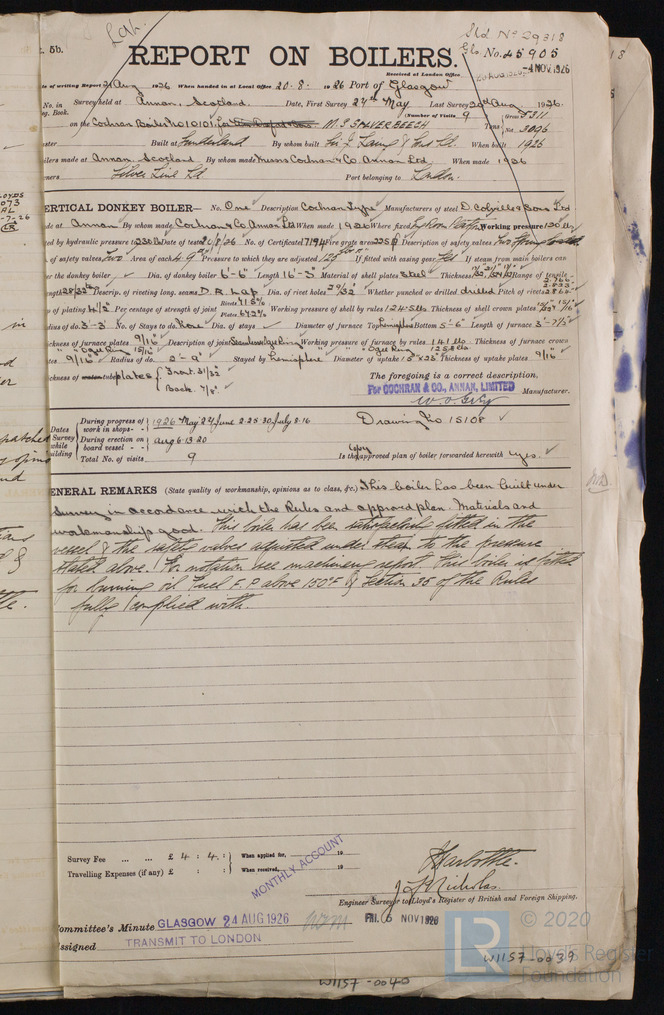 t. 5b.
Sld. No 29318
REPORT ON BOILERS.
Gls. No. 45905
Received at London Office
-4 NOV 1926
te of writing Report 21 Aug 1926 When handed in at Local Office 20.8.1926 Port of Glasgow
No. in Survey held at Annan, Scotland. Date, First Survey 27th May Last Survey 20th Aug 1926.
eg. Book.
(Number of Visits 9
on the Cochran Boiler No 10101 for M.S SILVERBEECH Tons Gross 5311 Net 3096
ster Built at Sunderland By whom built Sir J. Laing & Sons Ld. When built 1926
oilers made at Annan, Scotland By whom made Messrs Cochran & Co. Annan Ltd. When made 1926
ners Silver Line Ld Port belonging to London.
ERTICAL DONKEY BOILER— No. One Description Cochran Type Manufacturers of steel D. Colville & Sons Ltd
de at Annan By whom made Cochran & Co. Annan Ltd When made 1926 Where fixed Working pressure 120 lbs
ted by hydraulic pressure to 230 lbs Date of test 2/8/26 No. of Certificate 17194 Fire grate area Description of safety valves
of safety valves two Area of each 4.9 Pressure to which they are adjusted If fitted with easing gear If steam from main boilers can
er the donkey boiler Dia. of donkey boiler 6'-6" Length 16'-3" Material of shell plates Steel Thickness Range of tensile
ength 28/32 tons Descrip. of riveting long. seams D.R. Lap Dia. of rivet holes 29/32 Whether punched or drilled drilled Pitch of rivets
p of plating 4 1/2" Per centage of strength of joint Rivets Plates 67.2% Working pressure of shell by rules 124.5 lbs Thickness of shell crown plates
dius of do. 3'-3" No. of Stays to do. None Dia. of stays Diameter of furnace Top Hemisphere Bottom 5'-6" Length of furnace 3'-7 1/2"
ckness of furnace plates 9/16" Description of joint Working pressure of furnace by rules 141 lbs Thickness of furnace crown
" Ogee Ring 15/16" " Ogee Ring 125.8 lbs
tes 9/16" Radius of do. 2'-9" Stayed by Hemisphere Diameter of uptake Thickness of uptake plates 9/16"
ckness of tubeplates { Front. 31/32" Back. 7/8"
The foregoing is a correct description,
For COCHRAN & CO., ANNAN, LIMITED Manufacturer.
Dates of Survey while building
During progress of work in shops - - 1926 May 27 June 2.28.30 July 8.16
During erection on board vessel - - Aug 6.13.20
Total No. of visits 9
Drawing No 15108
Is the copy approved plan of boiler forwarded herewith yes.
ENERAL REMARKS (State quality of workmanship, opinions as to class, &c.) This boiler has been built under
survey in accordance with the Rules and approved plan. Materials and
workmanship good. This boiler has been satisfactorily fitted in the
vessel & the safety valves adjusted under steam to the pressure
stated above. For notation see machinery report. This boiler is fitted
for burning oil fuel F.P above 150°F & Section 36 of the Rules
fully complied with.
Survey Fee ... ... £ 4 : 4 : When applied for, 19
Travelling Expenses (if any) £ : : When received, 19
MONTHLY ACCOUNT
J Nicholas.
Engineer Surveyor to Lloyd's Register of British and Foreign Shipping.
ommittee's Minute GLASGOW 24 AUG 1926
FRI. 5 NOV 1926
ssigned TRANSMIT TO LONDON
© 2020
LR Lloyd's Register
Foundation
W1157-0039
W1157-0040